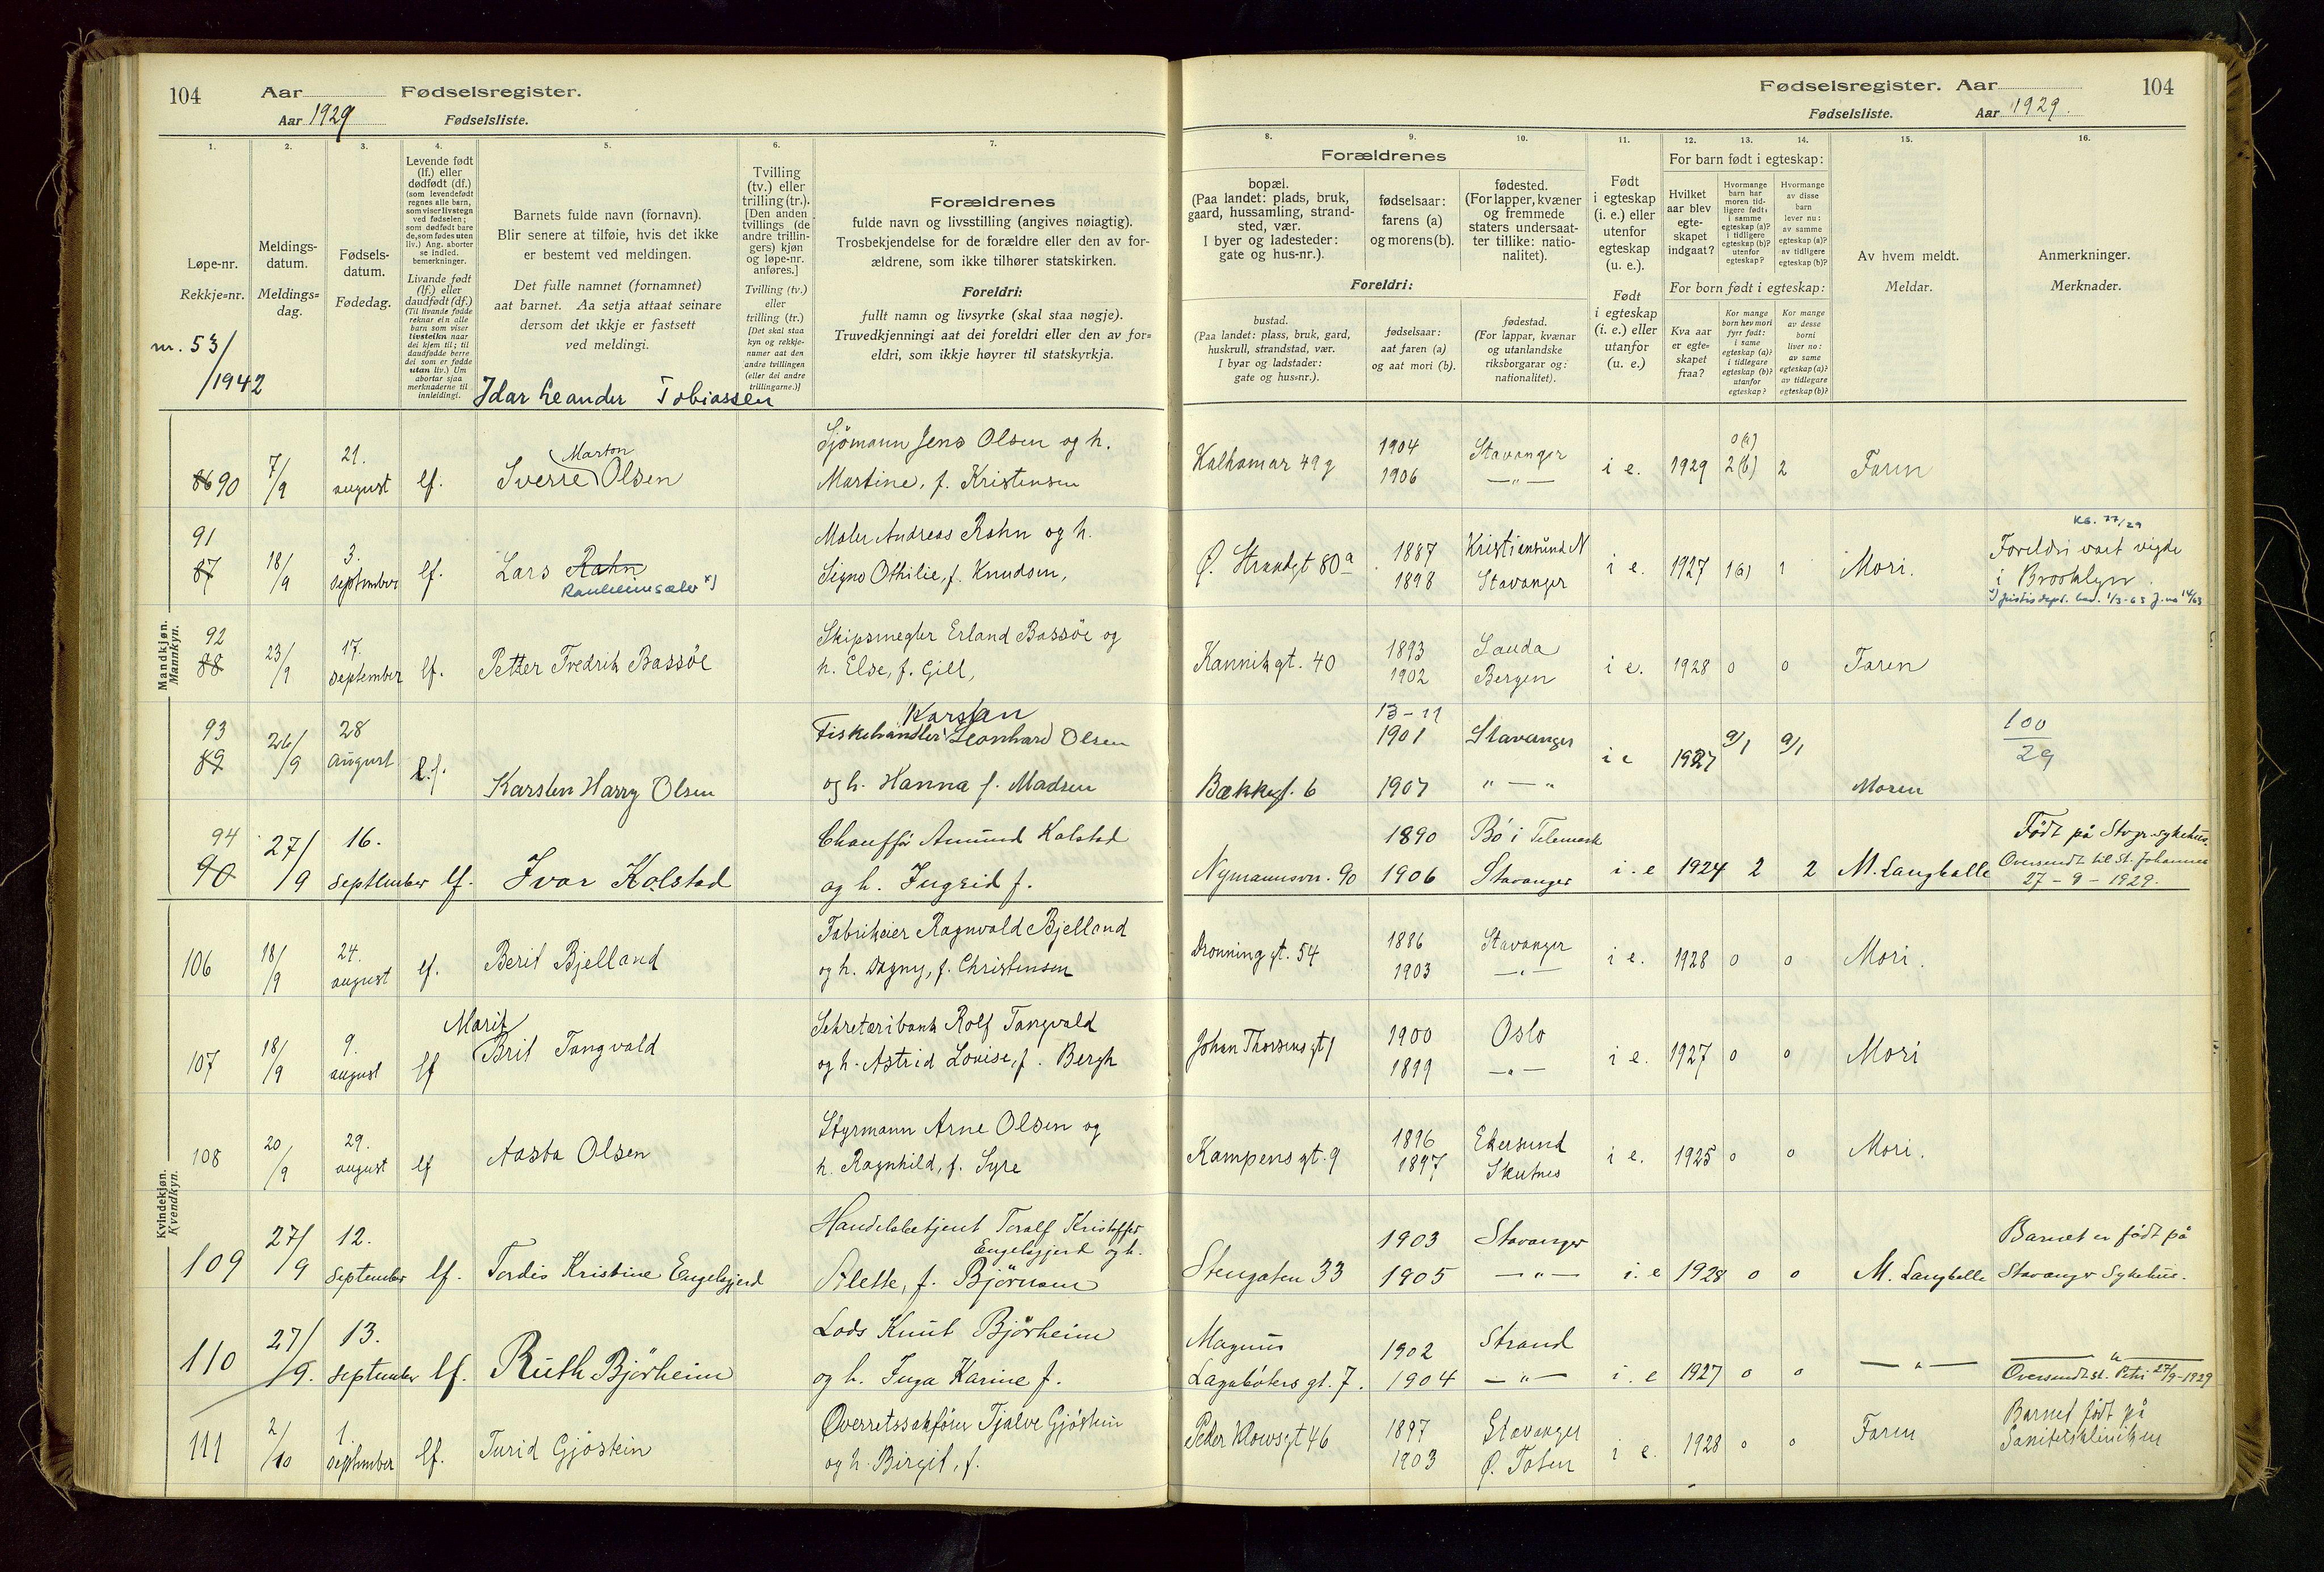 104 Aar Fødselsregister.
Aar 1929 Fødselsliste.
Fødselsregister. Aar 104
Fødselsliste. Aar 1929.
1. 2. 3. 4. 5. 6. 7.
Løpe-nr.
Rekkje=nr.
Meldings-
datum.
Meldings=
dag.
Fødsels-
datum.
Fødedag.
Levende født
(lf.) eller
dødfødt (df.)
(som levendefødt
regnes alle barn,
som viser livstegn
ved fødselen;
som dødfødt bare
de, som fødes uten
liv.) Ang. aborter
se indled.
bemerkninger.
Livande født
(lf.) eller
daudfødt (df.)
(Til livande fødde
reknar ein alle
barn som viser
livsteikn naar
dei kjem til; til
daudfødde berre
dei som er fødde
utan liv.) Um
abortar sjaa
merknaderne til
innleidingi.
Barnets fulde navn (fornavn).
Blir senere at tilføie, hvis det ikke
er bestemt ved meldingen.
Det fulle namnet (fornamnet)
aat barnet. Aa setja attaat seinare
dersom det ikkje er fastsett
ved meldingi.
Tvilling
(tv.) eller
trilling (tr.).
[Den anden
tvillings (de
andre trillin-
gers) kjøn
og løpe-nr.
anføres.]
Tvilling (tv.)
eller
trilling (tr.)
[Det skal staa
kyn og rekkje-
numer aat den
andre tvillingen
(eller dei andre
trillingarne.)]
Forældrenes
fulde navn og livsstilling (angives nøiagtig).
Trosbekjendelse for de forældre eller den av for-
ældrene, som ikke tilhører statskirken.
Foreldri:
fullt namn og livsyrke (skal staa nøgje).
Truvedkjenningi aat dei foreldri eller den av for=
eldri, som ikkje høyrer til statskyrkja.
8. 9. 10. 11. 12. 13. 14. 15. 16.
Forældrenes
bopæl.
(Paa landet: plads, bruk,
gaard, hussamling, strand-
sted, vær.
I byer og ladesteder:
gate og hus-nr.).
fødselsaar:
farens (a)
og morens (b).
fødested.
(For lapper, kvæner
og fremmede
staters undersaat-
ter tillike: natio-
nalitet).
Foreldri:
bustad.
(Paa landet: plass, bruk, gard,
huskrull, strandstad, vær.
I byar og ladstader:
gate og hus=nr.).
fødselsaar:
aat faren (a)
og aat mori (b).
fødestad.
(For lappar, kvænar
og utanlandske
riksborgarar og:
nationalitet).
Født
i egteskap
(i. e.) eller
utenfor
egteskap
(u. e.).
Født
i egteskap
(i. e.) eller
utanfor
(u. e.)
For barn født i egteskap:
Hvilket
aar blev
egte-
skapet
indgaat?
Hvormange
barn har
moren tid-
ligere født:
i samme
egteskap (a)?
i tidligere
egteskap (b)?
utenfor
egteskap?
Hvormange
av disse
barn
lever nu:
av samme
egteskap (a)?
av tidligere
egteskap (b)?
For born født i egteskap:
Kva aar
er egte-
skapet
fraa?
Kor mange
born hev mori
fyrr født:
i same
egteskap (a)?
i tidlegare
egteskap (b)?
utanfor
egteskap?
Kor mange
av desse
borni
liver no:
av same
egteskap (a)?
av tidlegare
egteskap (b)?
Av hvem meldt.
Meldar.
Anmerkninger.
Merknader.
nr. 53/
/1942 Idar Leander Tobiassen
Mandkjøn.
Mannkyn.
86 90 7/9 21. august lf. Sverre Marton Olsen
Sjömann Jens Olsen og h.
Martine, f. Kristensen
Kalhamar 49 g 1904 Stavanger
1906 —"— i e. 1929 0(a) 2(b) 2 Faren
91
87 18/9 3. september lf. Lars Rahn
Ranheimsæter x)
Maler Andreas Rahn og h.
Signe Othilie, f. Knudsen,
Ø. Strandgt 80a 1887 Kristiansund N
1898 Stavanger i e. 1927 1(a) 1 Mori.
KG. 77/29
Foreldri vart vigde
i Brooklyn.
x) Justisdept. bev. 1/3-63 J.no 14/63
92
88 23/9 17. september lf. Petter Fredrik Bassöe
Skipsmegler Erland Bassöe og
h. Else, f. Gill,
Kannikgt. 40 1893 Sauda
1902 Bergen i e. 1928 0 0 Faren
93
89 26/9 28 august l.f. Karsten Harry Olsen
Karstan
Fiskehandler Leonhard Olsen
og h. Hanna f. Madsen
Bækkegt. 6 13-11
1901 Stavanger
1907 "—" i e 1927 9/1 9/1 Moren
100
29
94
90 27/9 16. september lf. Ivar Kolstad
Chauffør Amund Kolstad
og h. Ingrid f.
Nymannsvn. 90 1890 Bö i Telemark
1906 Stavanger i. e 1924 2 2 M. Langballe
Født på Stvgr. sykehus.
Oversendt til St. Johannes
27-9-1929.
Kvindekjøn.
Kvendkyn.
106 18/9 24. august lf. Berit Bjelland
Fabrikeier Ragnvald Bjelland
og h. Dagny, f. Christensen
Dronning gt. 54 1886 Stavanger
1903 —"— i e. 1928 0 0 Mori.
107 18/9 9. august lf Marit
Brit Tangvald
Sekretær i bank Rolf Tangvald
og h. Astrid Louise, f. Bergh
Johan Thorsens gt 1 1900 Oslo
1899 —"— i e. 1927 0 0 Mori
108 20/9 29. august lf Aasta Olsen
Styrmann Arne Olsen og
h. Ragnhild, f. Syre
Kampens gt. 9 1896 Ekersund
1897 Skutnes i e. 1925 0 0 Mori.
109 27/9 12. september lf. Tordis Kristine Engelsgjerd
Handelsbetjent Toralf Kristoffer
Engelsgjerd og h.
Alette, f. Björnson
Stengaten 33 1903 Stavanger
1905 —"— i. e 1928 0 0 M. Langballe
Barnet er født på
Stavanger Sykehus.
110 27/9. 13. september lf. Ruth Björheim
Lods Knut Björheim
og h. Inga Karine f.
Magnus
Lagabøters gt. 7. 1902 Strand
1904 —"— i. e 1927 0 0 —"—
—"—
Oversendt st. Petri 27/9-1929
111 2/10 1. september lf. Turid Gjöstein
Overretssakfører Tjalve Gjöstein
og h. Birgit, f.
Peder Klowsgt 46 1897 Stavanger
1903 Ø. Toten i e. 1928 0 0 Faren
Barnet født på
Sanitetsklinikken